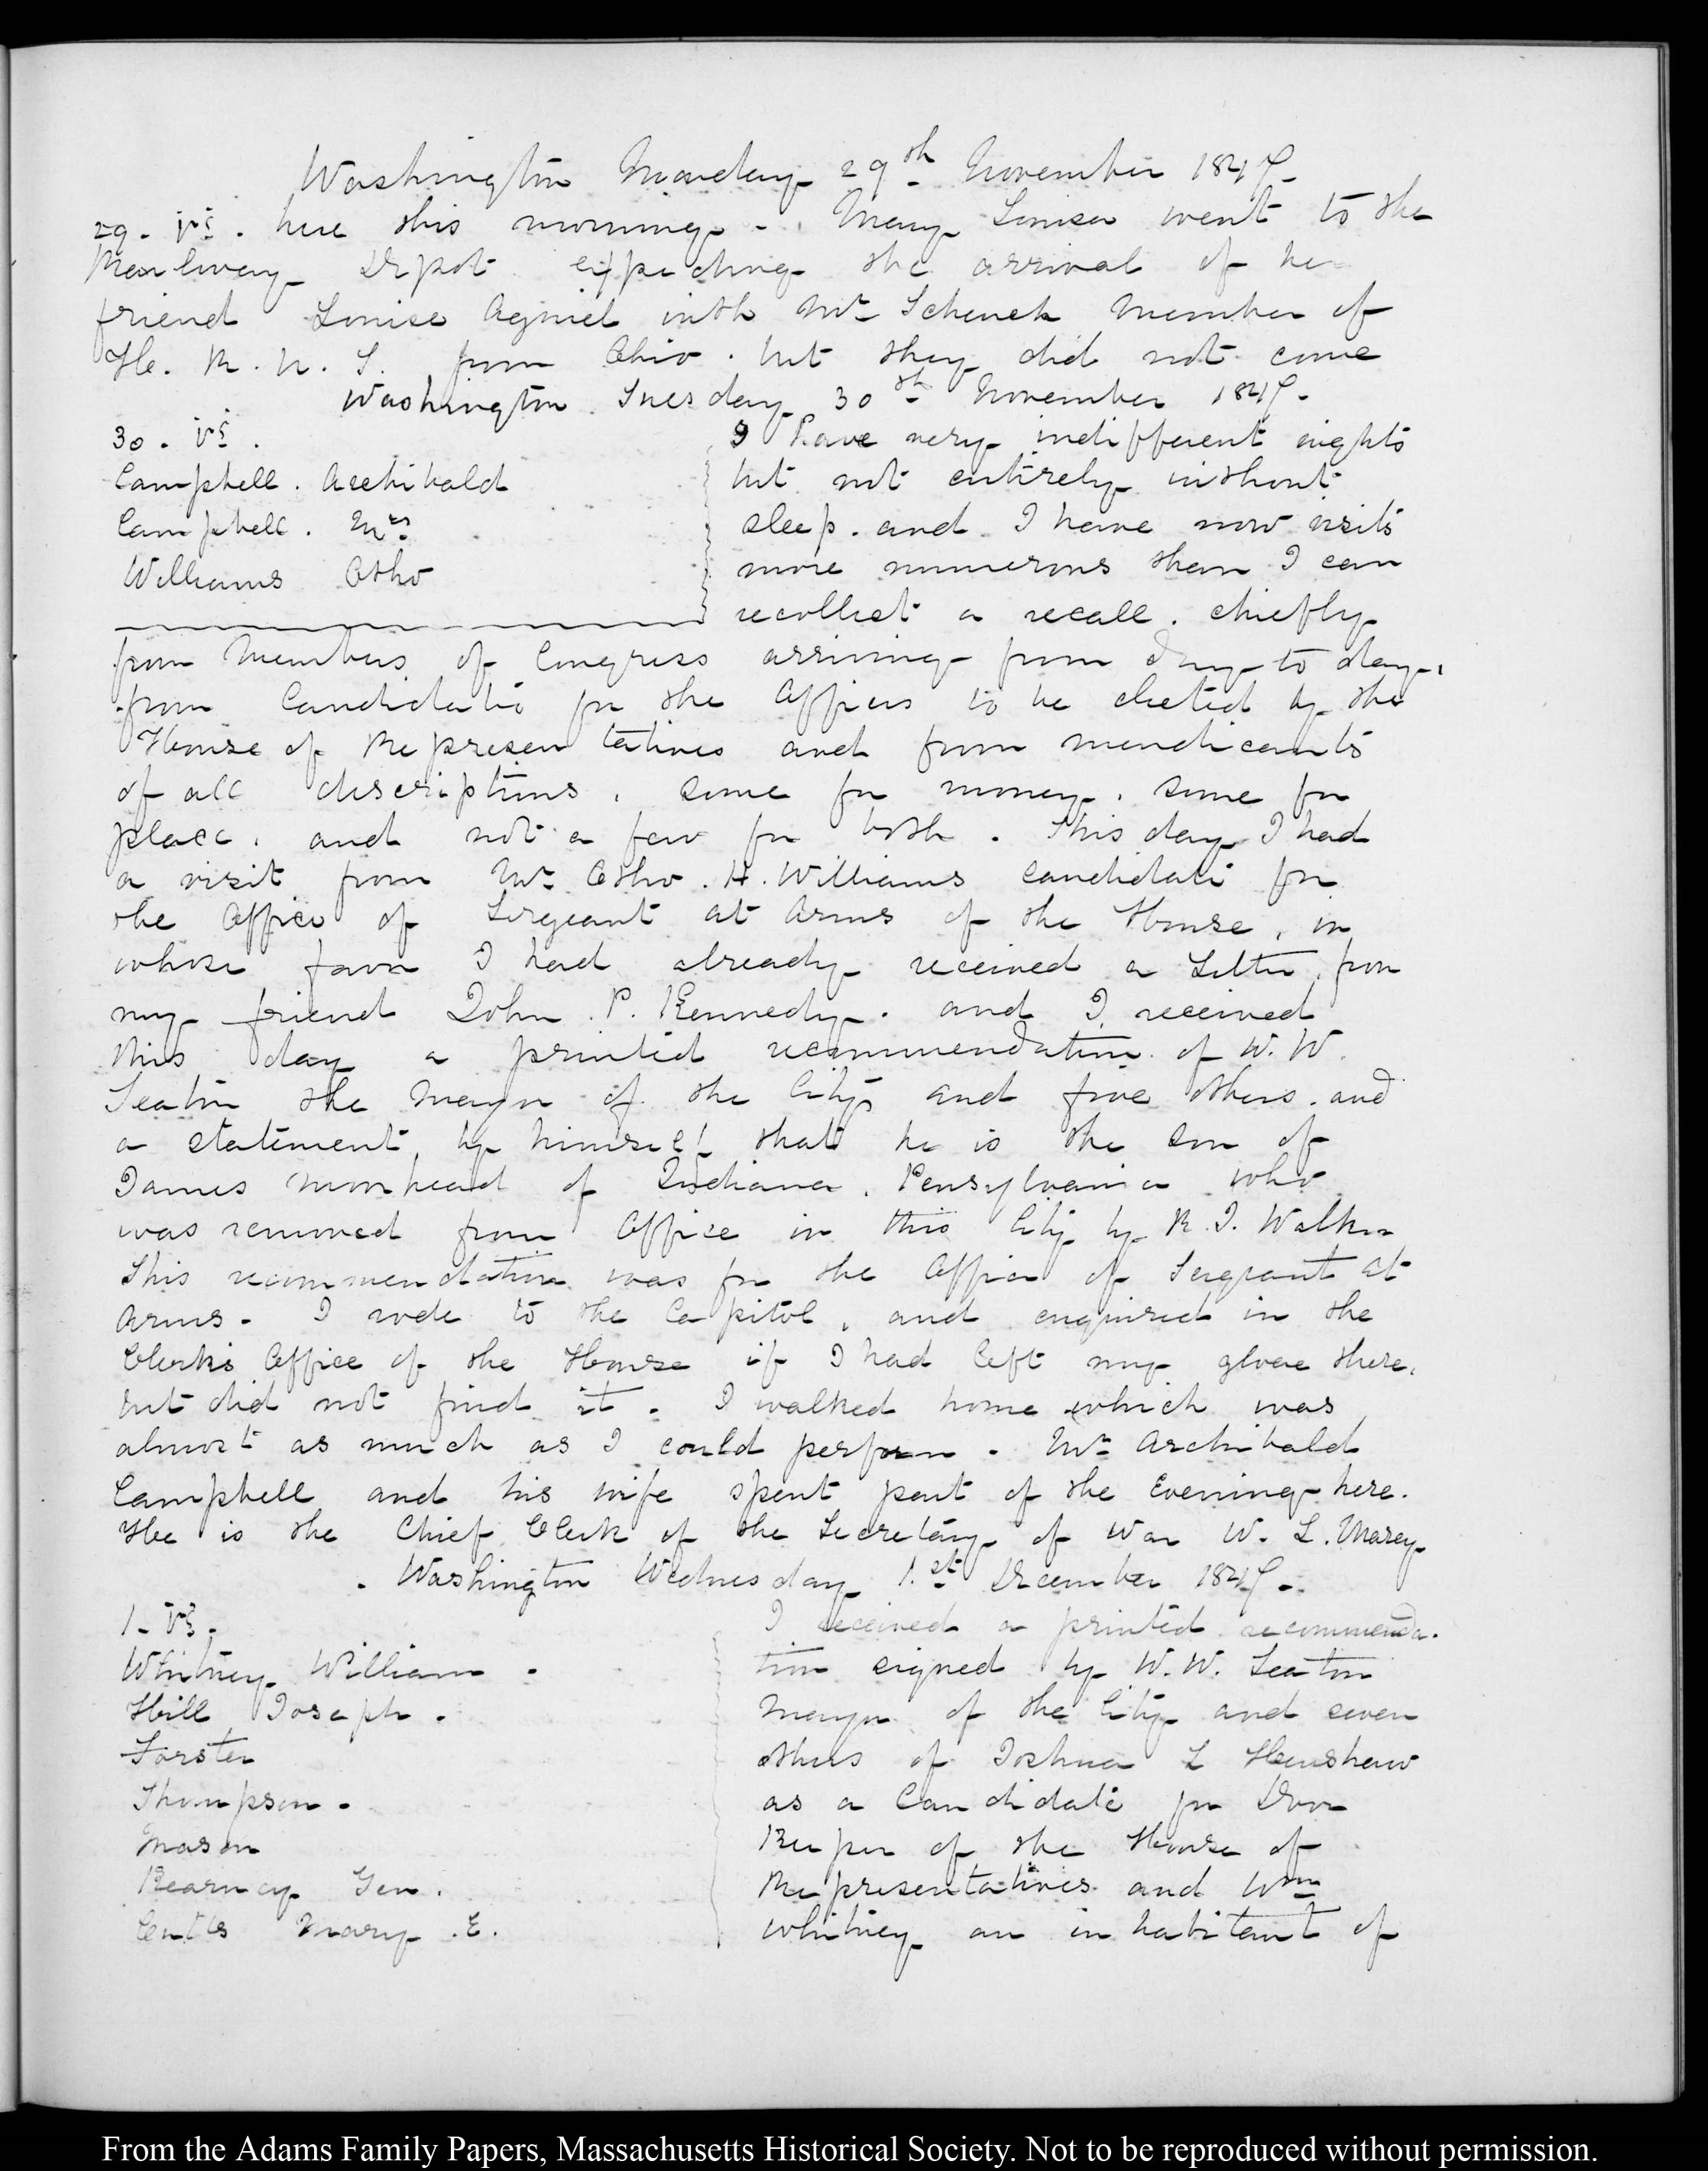 Washington Monday 29th November 1847-
29. VS. here this morning. Mary Louisa went to the
Railway Depot expecting the arrival of her
friend Louise Agniel with Mr Schenck Member of
H. R. U. S. from Ohio. but they did not come
Washington Tuesday 30th November 1847.
30. VS.
Campbell. Archibald
Campbell. Mrs
Williams Otho
I have very indifferent nights
but not entirely without
sleep. and I have now visits
more numerous than I can
recollect or recall. chiefly
from Members of Congress arriving from day to day,
from Candidates for the Offices to be elected by the
House of Representatives and from mendicants
of all descriptions, some for money, some for
place, and not a few for both. This day I had
a visit from Mr Otho. H. Williams candidate for
the Office of Sergeant at Arms of the House, in
whose favor I had already received a Letter from
my friend John. P. Kennedy. and I received
this day a printed recommendation of W. W.
Seaton the Mayor of the City and five others. and
a statement by himself that he is the Son of
James Moorhead of Indiana, Pensylvania who
was removed from Office in this City by R. J. Walker
This recommendation was for the Office of Sergeant at
Arms. I rode to the Capitol, and enquired in the
Clerks Office of the House if I had left my glove there,
but did not find it. I walked home which was
almost as much as I could perform. Mr Archibald
Campbell and his wife spent part of the Evening here.
He is the Chief Clerk of the Secretary of War W. L. Marcy
Washington Wednesday 1.st December 1847.
1. VS.
Whitney William.
Hill Joseph.
Forster
Thompson.
Mason
Kearney Gen.
Cutts Mary. E.
I received a printed recommenda-
tion signed by W. W. Seaton
Mayor of the City and seven
others of Joshua L Henshaw
as a Candidate for Door
Keeper of the House of
Representatives and Wm
Whitney an inhabitant of
From the Adams Family Papers, Massachusetts Historical Society. Not to be reproduced without permission.